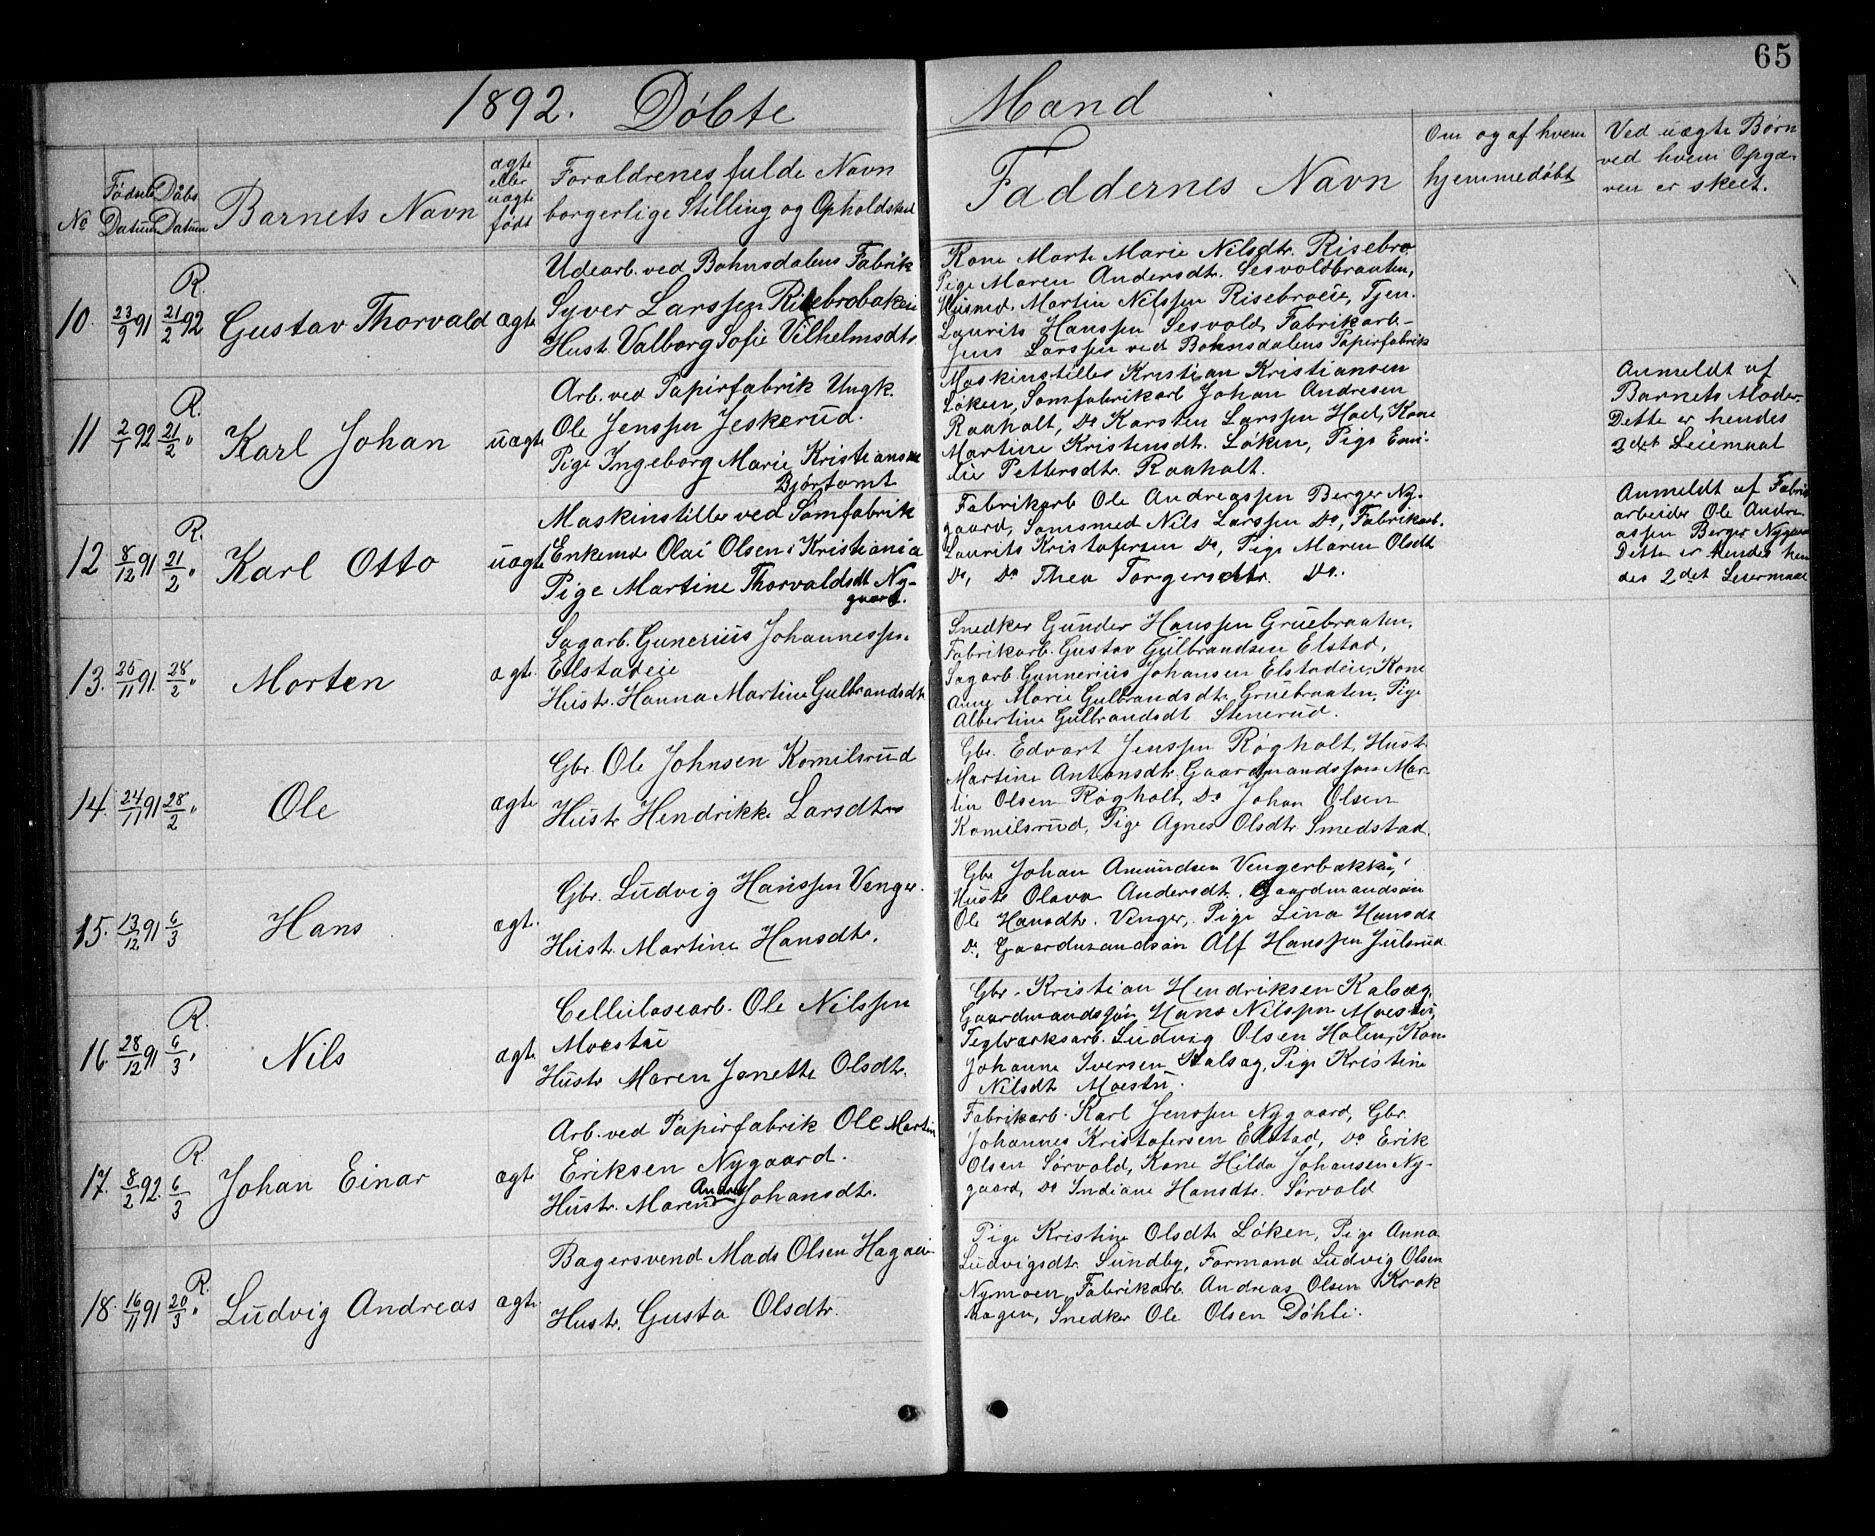 65
1892. Döbte Mænd
No
Födsels Datum
Daabs Datum
Barnets Navn
ægte eller uægte födt
Forældrenes fulde Navn
borgerlige Stilling og Opholdsted
Faddernes Navn
Om og af hvem
hjemmedöbt
Ved uægte Børn
ved hvem Opgæ-
ven er skeet.
10. 23/9 91 R. 21/2 92 Gustav Thorvald ægte
Udearb. ved Bøhnsdalens Fabrik
Syver Larssen Risebrobakei
Hust. Valborg Sofie Vilhelmsdtr
Kone Marte Marie Nilsdtr. Risebro
Pige Maren Andersdtr. Sesvoldbraaten,
Husmd. Martin Nilssen Risebroeie, Tjen.
Laurits Hanssen Sesvold, Fabrikarb-
Jens Larssen ved Bøhnsdalens Papirfabrik
11 2/1 92 R. 21/2 " Karl Johan uægte
Arb. ved Papirfabrik Ungk.
Ole Jenssen Jeskerud.
Pige Ingeborg Marie Kristians
Maskinstiller Kristian Kristiansen
Löken, Tomfabrikarb Johan Andresen
Raaholt, Do Karsten Larssen Hoel, Kone
Martine Kristensdtr. Löken, Pige Emi-
lie Pettersdtr. Raaholt.
Anmeldt af
Barnets Moder
Dette er hendes
2det Leiemaal
12 8/12 91 R. 21/2 " Karl Otto uægte
Maskinstiller ved Tomfabrik
Enkemd Olai Olsen i Kristiania
Pige Martine Thorvaldsdt Ny-
gaard.
Fabrikarb Ole Andreassen Berger Ny-
gaard, Nils Larssen Do, Fabrikarb.
Laurits Kristofersen Do, Pige Maren Olsdtr
Do, Do Thea Torgersdtr. Do.
Anmeldt af Fabrik
arbeider Ole Andre
assen Berger Nygaard
Dette er hendes hen
des 2det Leiermaal
13. 25/11 91. 28/2 " Morten ægte
Sagarb. Gunerius Johannessen
Elstadeie
Hustr. Hanna Martine Gulbrandsdtr
Snedker Gunder Hanssen Gruebraaten,
Fabrikarb. Gustav Gulbrandsen Elstad,
Sagarb. Gunnerius Johansen Elstadeie, Kone
Anne Marie Gulbrandsdtr. Gruebraaten, Pige
Albertine Gulbrandsdt Stenerud.
14. 24/11 91 28/2 " Ole ægte
Gbr. Ole Johnsen Komilsrud
Hustr Hendrikke Larsdtr
Gbr. Edvart Jenssen Rögholt, Hust.
Martine Antonsdtr. Gaardmandssøn Mar-
tin Olsen Røgholt, Do Johan Olsen
Komilsrud, Pige Agnes Olsdtr Smedstad.
15. 13/12 91 6/3 Hans ægt.
Gbr. Ludvig Hanssen Venger.
Hust. Martine Hansdtr.
Gbr Johan Amundsen Vengerbakke,
Hustr Olava Andersdt. Gaardmandssøn
Ole Hansdtr. Venger, Pige Lina Hansdt
Do, Gaardmandssøn Alf Hanssen Julsrud
16. 28/12 91 R. 6/3 " Nils ægte
Cellulosearb. Ole Nilssen
Moestu
Hustr Maren Janette Olsdtr.
Gbr. Kristian Hendriksen Kalsæg,
Gaardmandssøn Hans Nilssen Moestu,
Teglværksarb. Ludvig Olsen Holen, Kone
Johanne Iversen Kalsæg, Pige Kristine
Nilsdt Moestu.
17. 8/2 92. R. 6/3 Johan Einar ægte
Arb. ved Papirfabrik Ole Martin
Eriksen Nygaard.
Hustr. Maren Andrea Johansdtr.
Fabrikarb. Karl Jenssen Nygaard, Gbr.
Johannes Kristofersen Elstad, Do Erik
Olsen Sörvald, Kone Hilda Johansen Ny-
gaard, Do Indiane Hansdtr. Sörvald
18. 16/11 91 R. 20/3 " Ludvig Andreas ægte
Bagersvend Mads Olsen Hagaeie
Hustr. Gusta Olsdtr.
Pige Kristine Olsdtr Löken, Pige Anna
Ludvigsdtr. Sundby, Formand Ludvig Olsen
Nymoen, Fabrikarb. Andreas Olsen Krok
hagen, Snedker Ole Olsen Döhli.